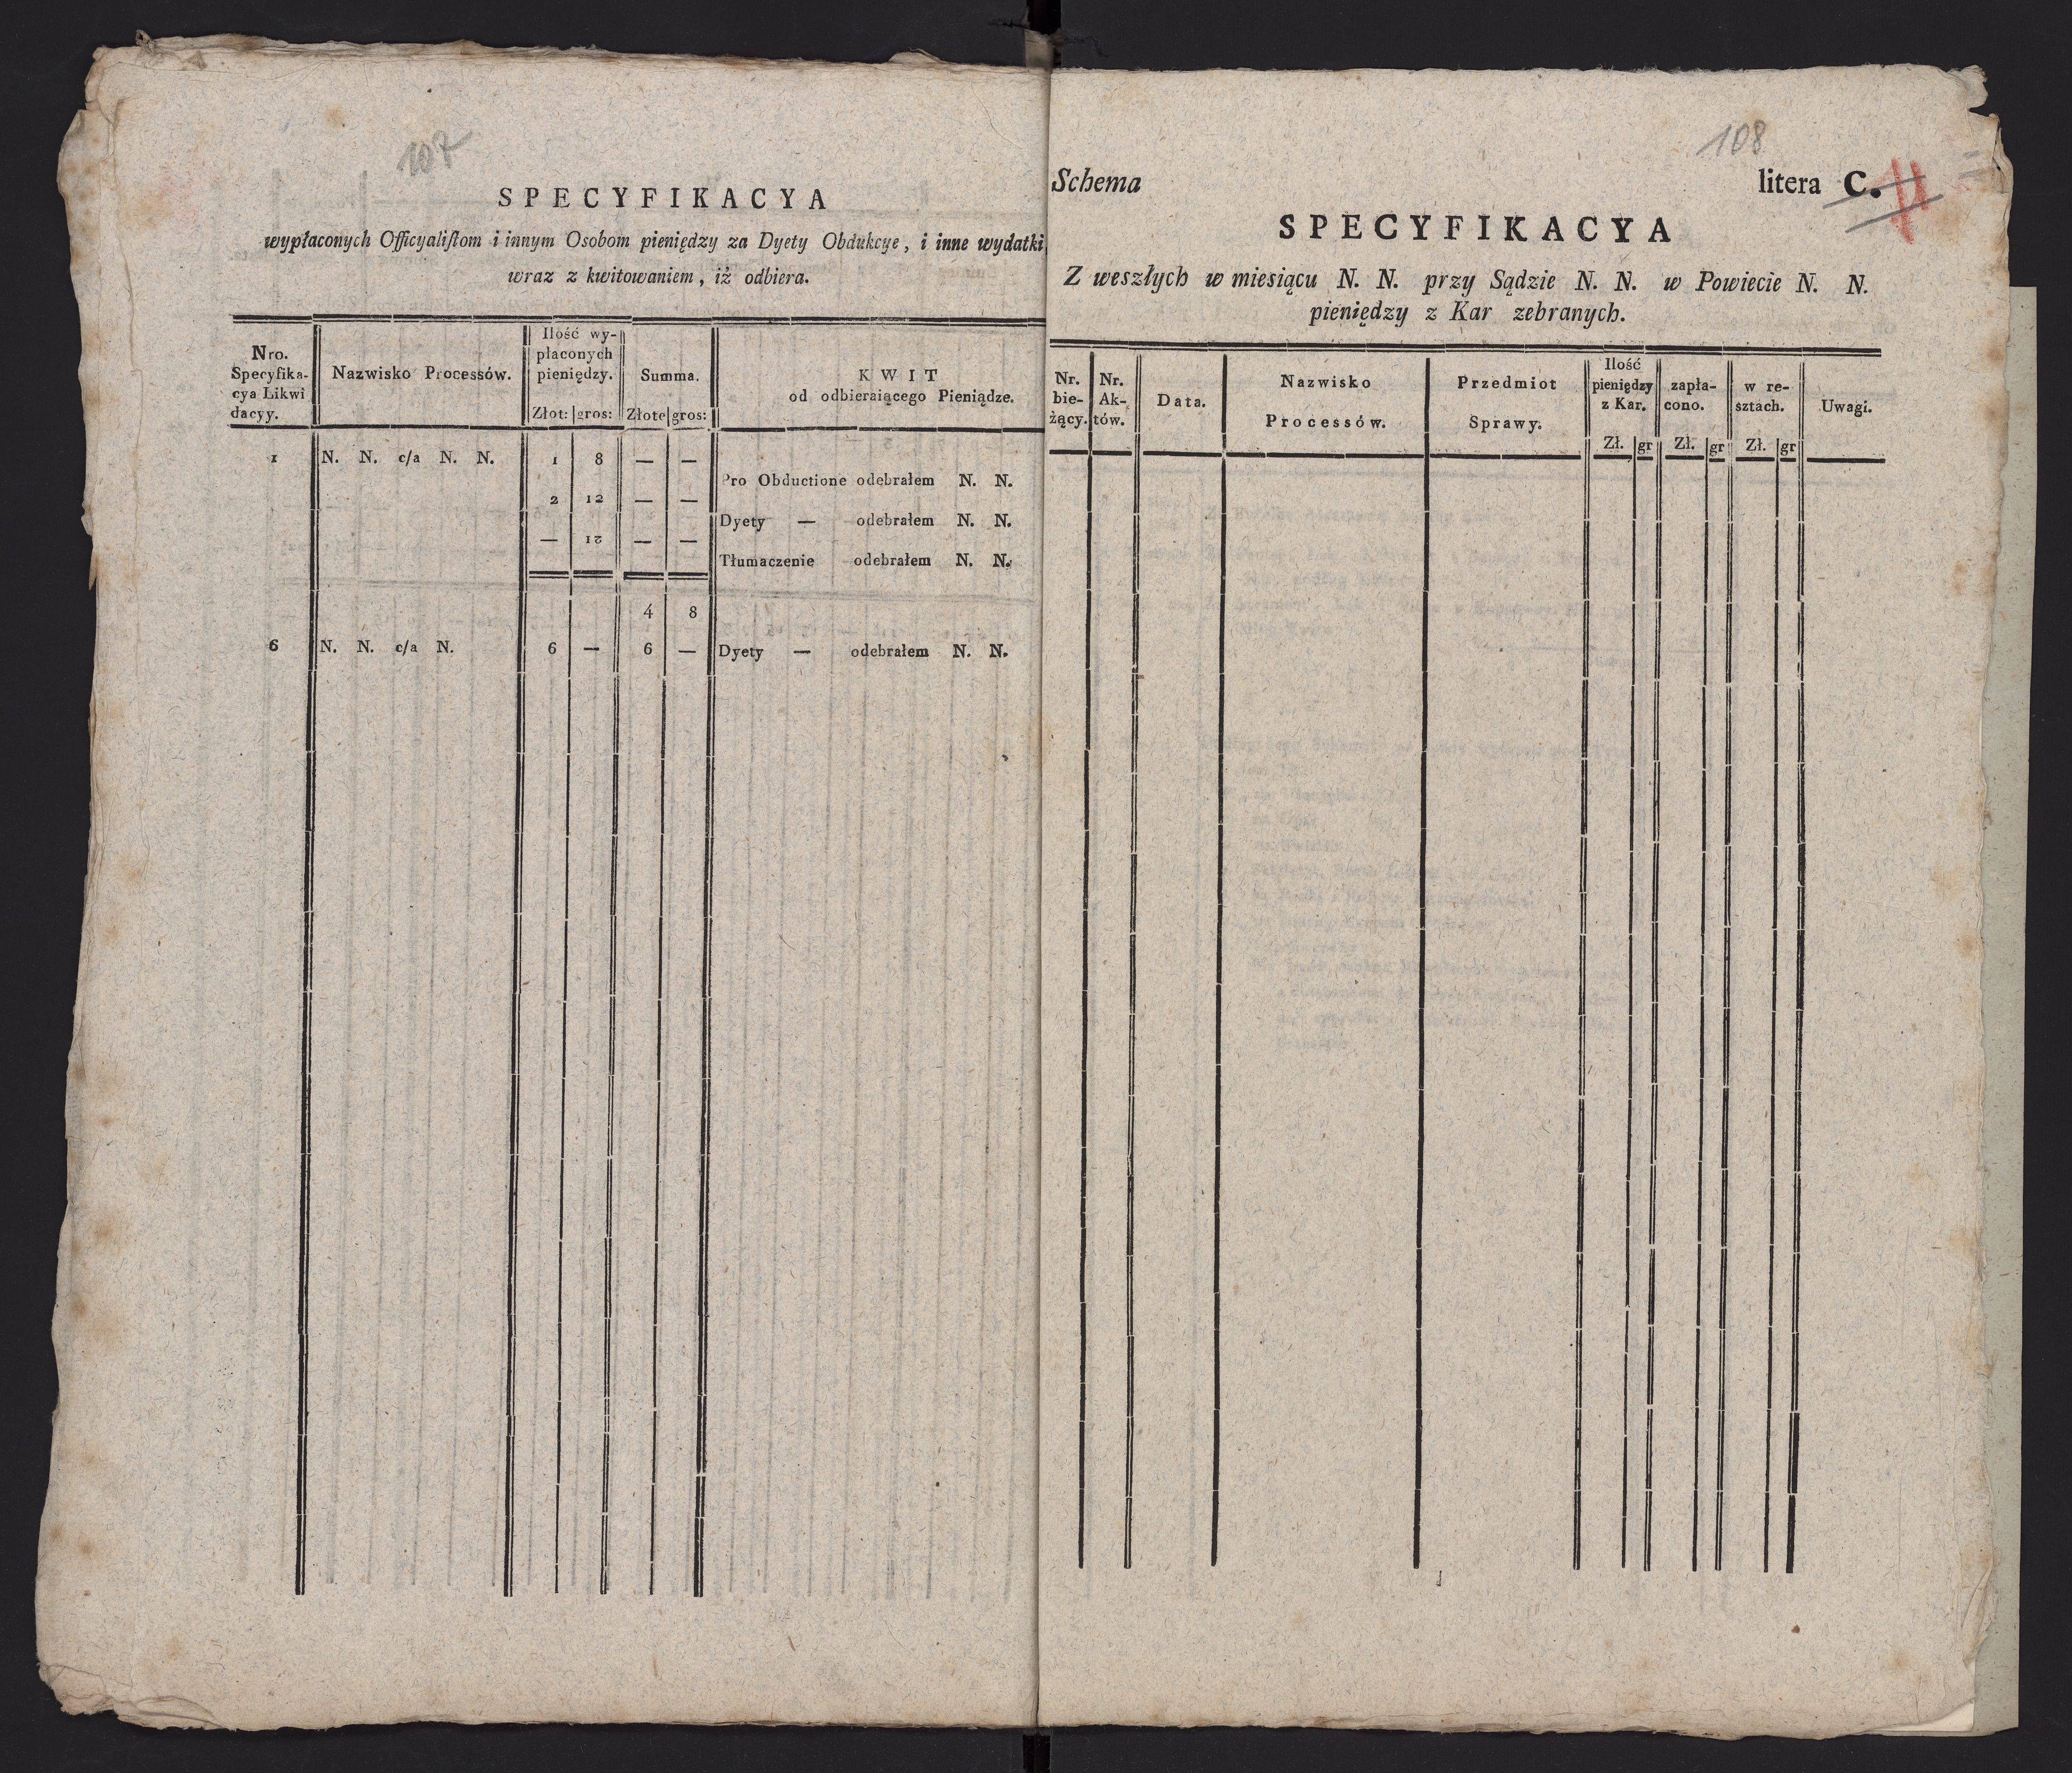 107
SPECYFIKACYA
wypłaconych Officyaliſtom i innym Osobom pieniędzy za Dyety Obdukcye, i inne wydatki
wraz z kwitowaniem, iż odbiera.
Nro. Specyfika- cya Likwi dacyy.
Nazwisko Processów.
Ilość wy- płaconych pieniędzy.
Złot: gros:
Summa.
Złote gros:
KWIT
od odbieraiącego Pieniądze.
1 N. N. c/a N. N. 1 8 — —
Pro Obductione odebrałem N. N.
2 12 — —
Dyety — odebrałem N. N.
— 12 — —
Tłumaczenie odebrałem N. N.
4 8
6 N. N. c/a N. 6 — 6 — Dyety — odebrałem N. N.
108
Schema litera C.
SPECYFIKACYA
Z weszłych w miesiącu N. N. przy Sądzie N. N. w Powiecie N. N.
pieniędzy z Kar zebranych.
Nr. bie- żący.
Nr. Ak- tów.
Data.
Nazwisko Processów.
Przedmiot Sprawy.
Ilość pieniędzy z Kar.
Zł. gr
zapła- cono.
Zł. gr
w re- sztach.
Zł. gr
Uwagi.